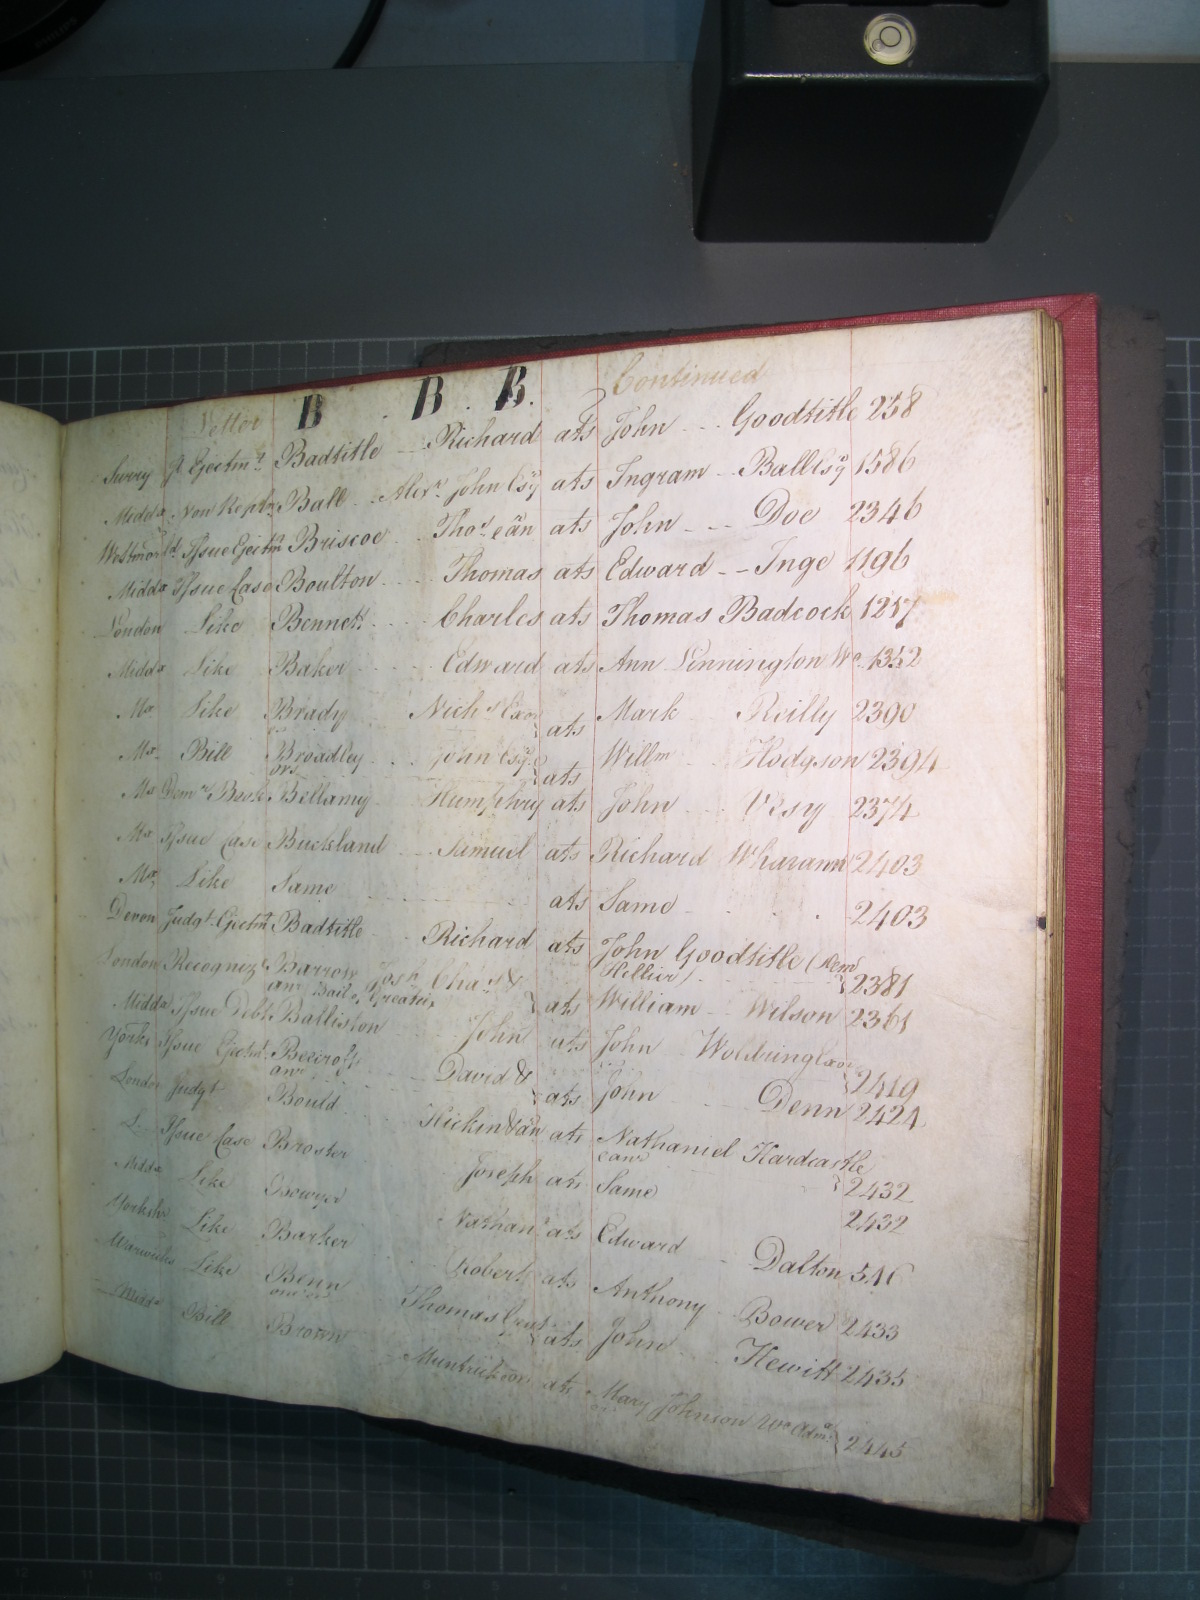 B B B. Continued
Surry Jt Ejectmt Badtitle Richard ats John Goodtitle 258
Middx Non Ball Alexr John Esqr ats Ingram Ball Esqr 1586
Westmorld Issue Ejectm Briscoe Thos & an ats John Doe 2346
Middx Issue Case Boulton Thomas ats Edward Inge 1196
London Like Bennett Charles ats Thomas Badcock 1217
Middx Like Baker Edward ats Ann Pennington Wo 1352
Mx Like Brady Nichs Exor ats Mark Reilly 2390
Mx Bill Broadley John Esqr & ors ats Willm Hodgson 2394
Mx Demr Book Bellamy Humphry ats John Vesy 2374
Mx Issue Case Buckland Samuel ats Richard Wharam 2403
Mx Like Same ats Same 2403
Devon Judgt Ejectmt Badtitle Richard ats John Goodtitle (Dem
Hillier) 2381
London Recognizce Barrow Josh Chas &
anr Bail ats William Wilson 2361
Middx Issue Debt Balliston John ats John Exor 2419
Yorks Issue Ejectmt Beecroft David &
anr ats John Denn 2424
London Judgt Bould & an ats Nathaniel Hardcastle
& anr 2432
L Issue Case Broster Joseph ats Same 2432
Middx Like Bowyer Nathanl ats Edward Dalton 546
Yorkshr Like Barker Robert ats Anthony Bower 2433
Warwicks Like Benn Thomas ats John Hewitt 2435
Middx Bill Brown ats Mary Johnson Wo Admx 2445